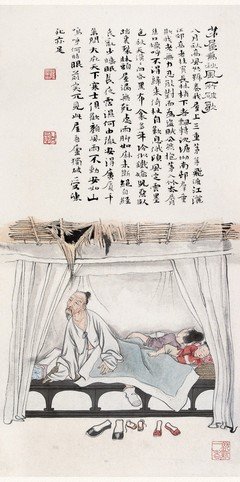 茅屋為秋風所破歌
八月秋高風怒號卷我屋上三重茅茅飛渡江灑
江郊高者掛罥長林梢下者飄轉沉塘坳南村群童
欺我老無力忍能對面為盜賊公然抱茅入竹去脣
焦口燥呼不得歸來倚杖自歎息俄頃風定雲墨
色秋天漠漠向昏黑布衾多年冷似鐵嬌兒惡臥
踏裏裂床頭屋漏無乾處雨腳如麻未斷絕自經
喪亂少睡眠長夜沾濕何由徹安得廣廈千
萬間大庇天下寒士俱歡顏風雨不動安如山
嗚呼何時眼前突兀見此屋吾廬獨破受凍
死亦足